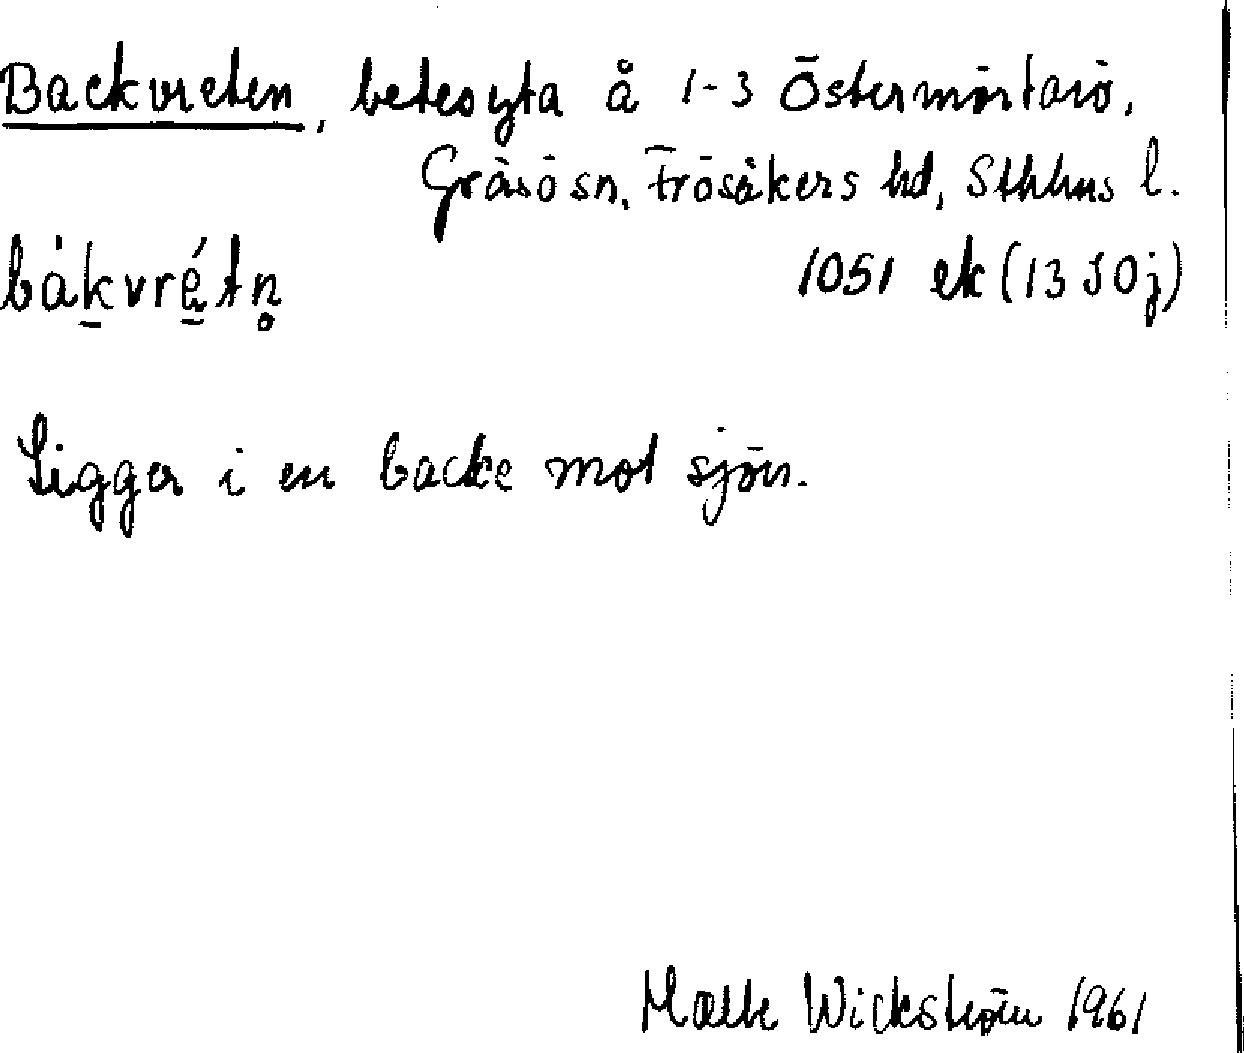 Backvreten, betesyta å 1-3 Östermörtarö,
Gräsö sn, Frösåkers hd, Sthlms l.
båkvrétn̥ 1051 ek (13 I 0 j)
Ligger i en backe mot sjön.
Malte Wickström 1961